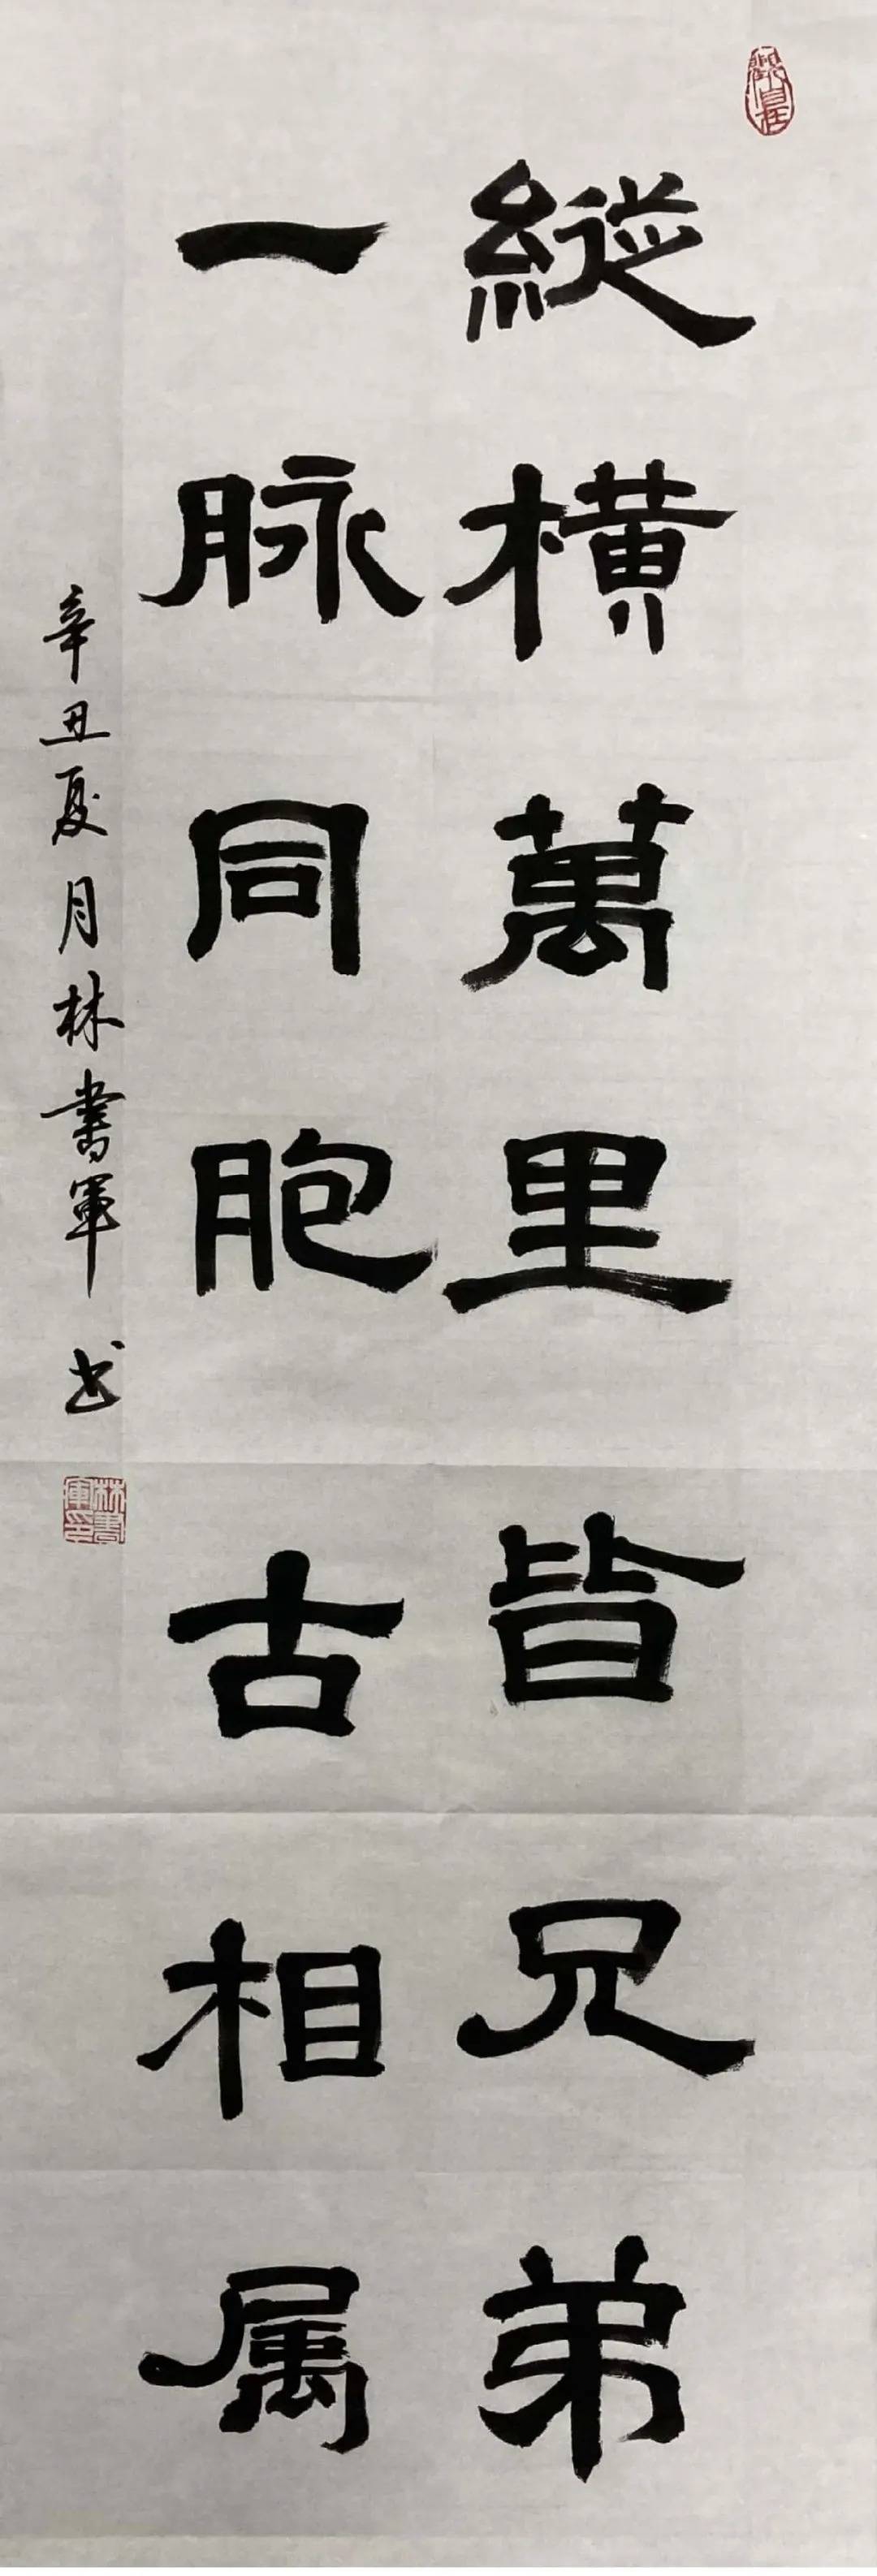 縱橫萬里皆兄弟
一脉同胞古相属
辛丑夏月林書軍书
林書軍印